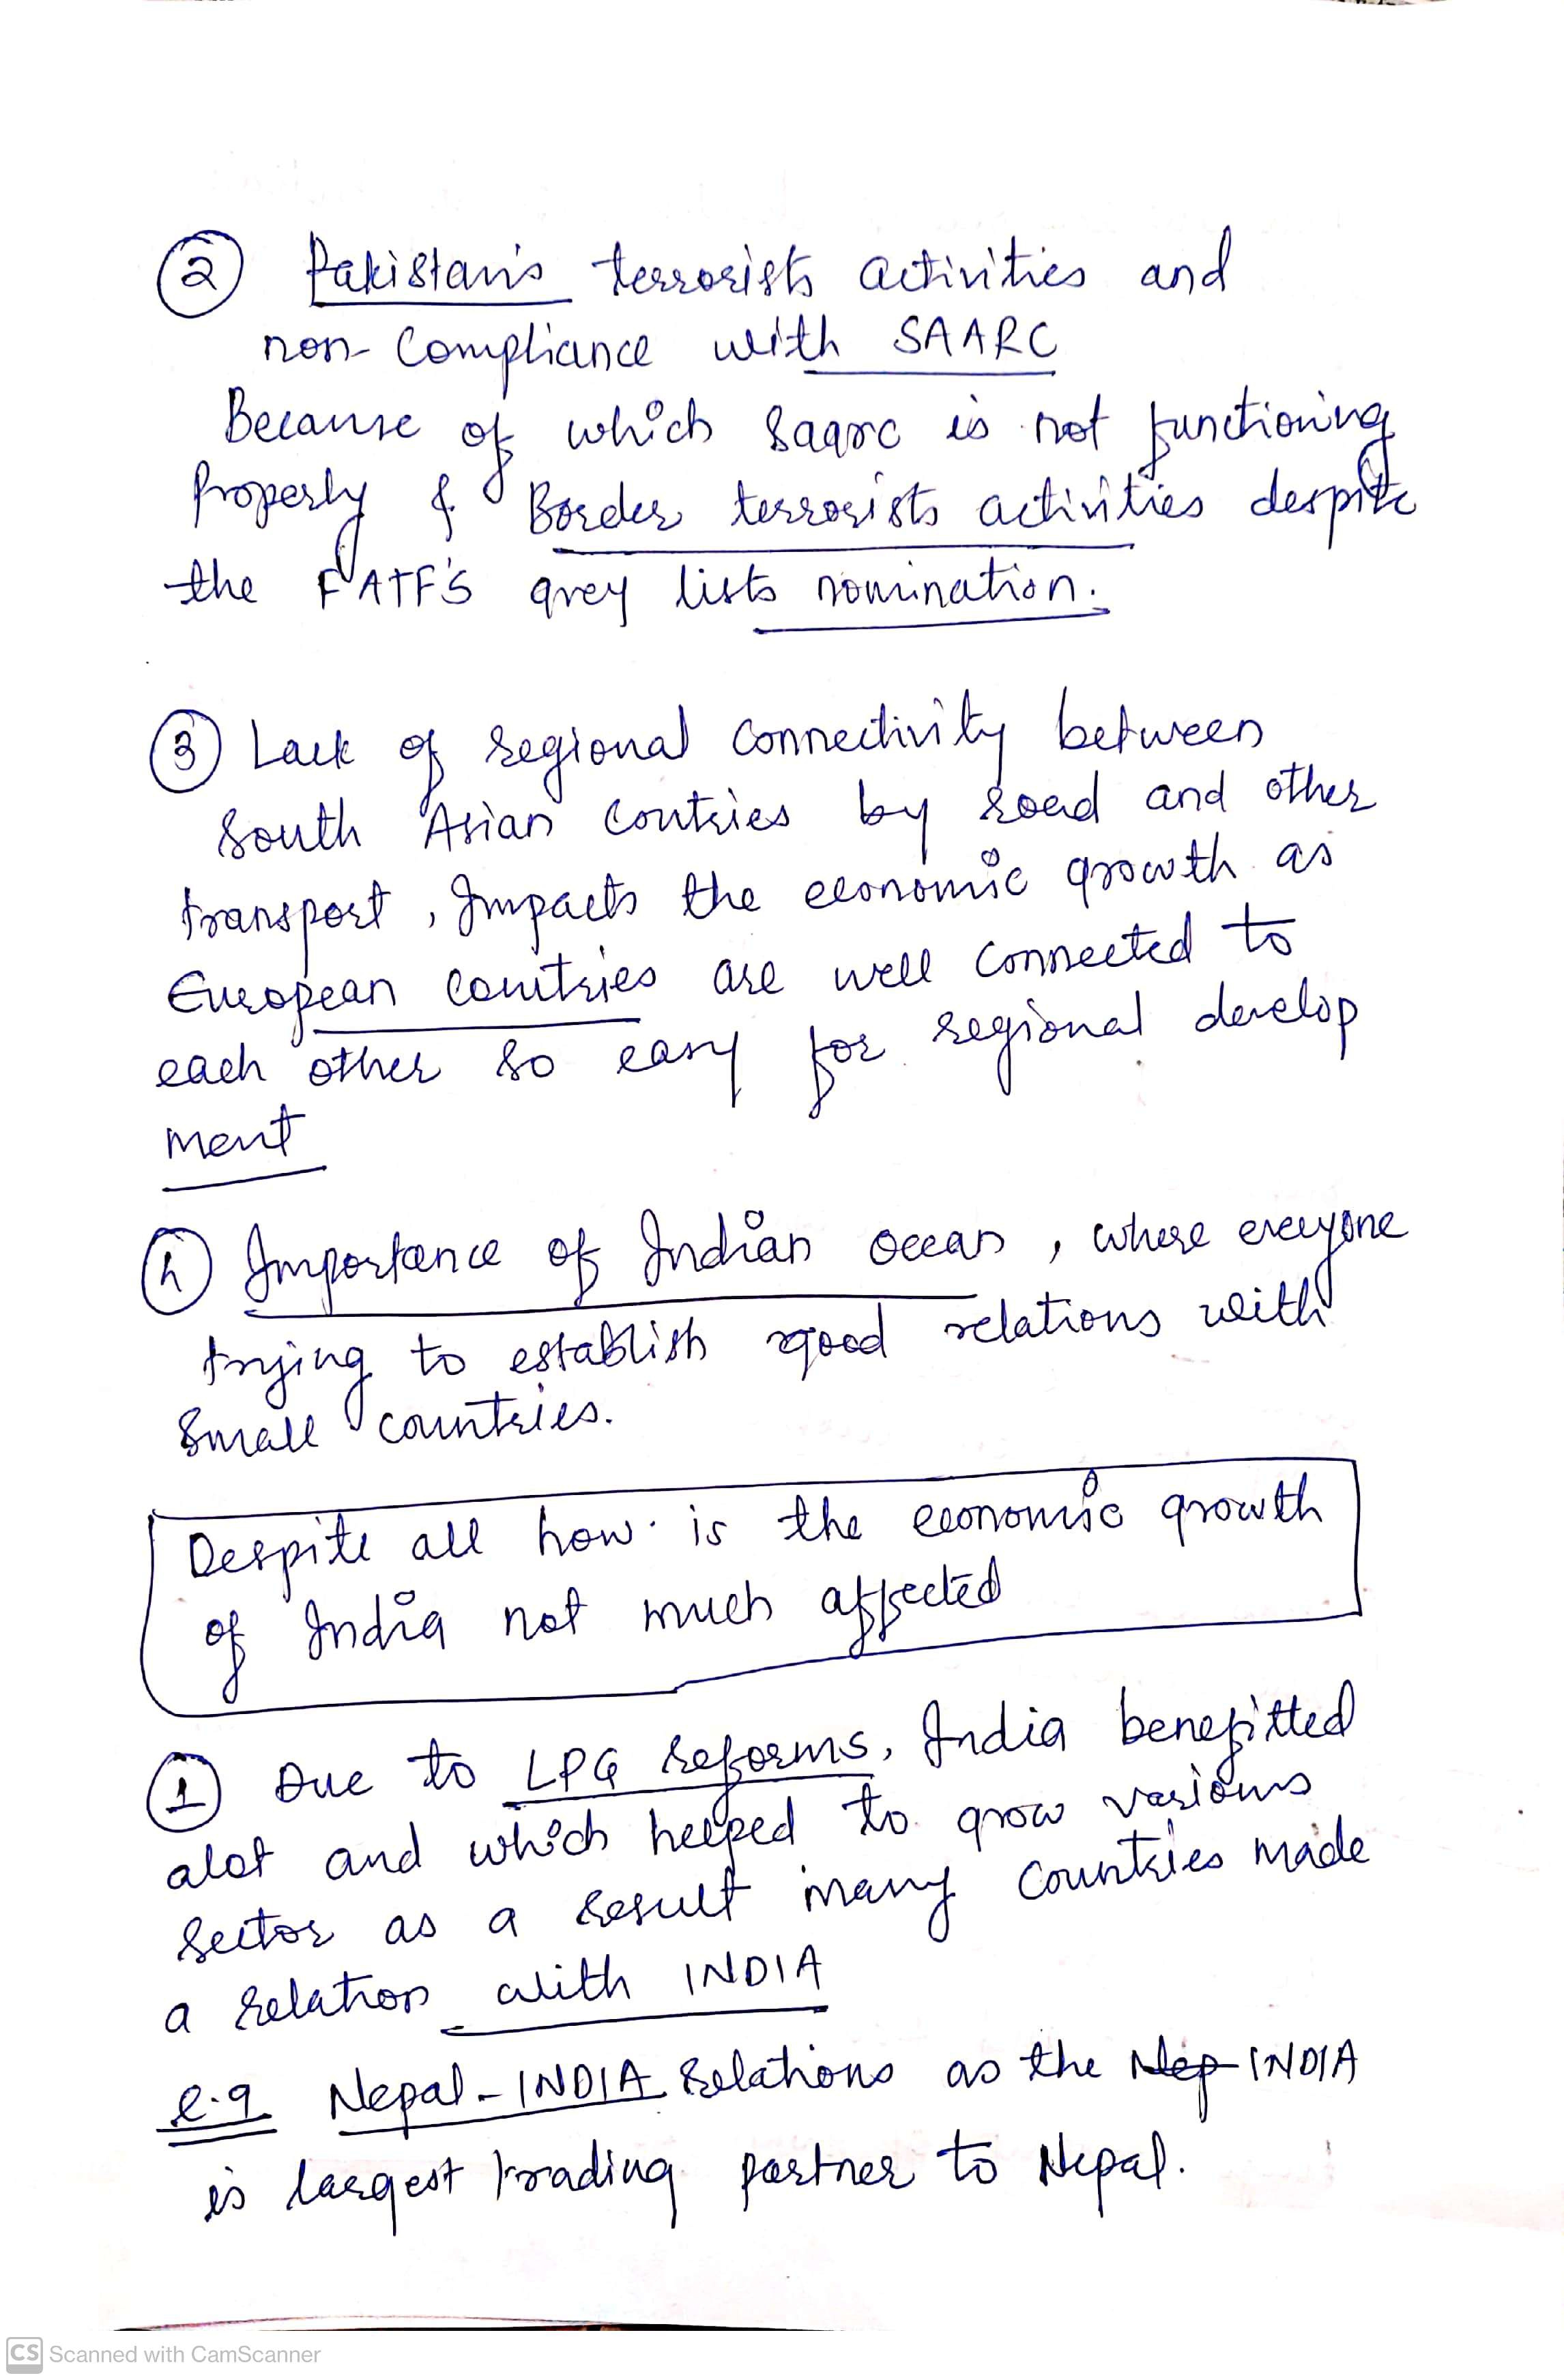 ② Pakistan's terrorists activities and
non-Compliance with SAARC
Because of which Saarc is not functioning
Properly & Border terrorists activities despite
the FATF'S grey lists nomination.
③ Lack of regional connectivity between
South Asian Contries by road and other
transport, Impacts the economic growth as
European countries are well connected to
each other so easy for regional develop
ment
④ Importance of Indian ocean, where everyone
trying to establish good relations with
Small countries.
Despite all how is the economic growth
of India not much affected
① Due to LPG reforms, India benefitted
alot and which helped to grow various
Sector as a result many countries made
a relation with INDIA
e.g Nepal-INDIA Relations as the Nep INDIA
is largest trading partner to Nepal.
CS Scanned with CamScanner